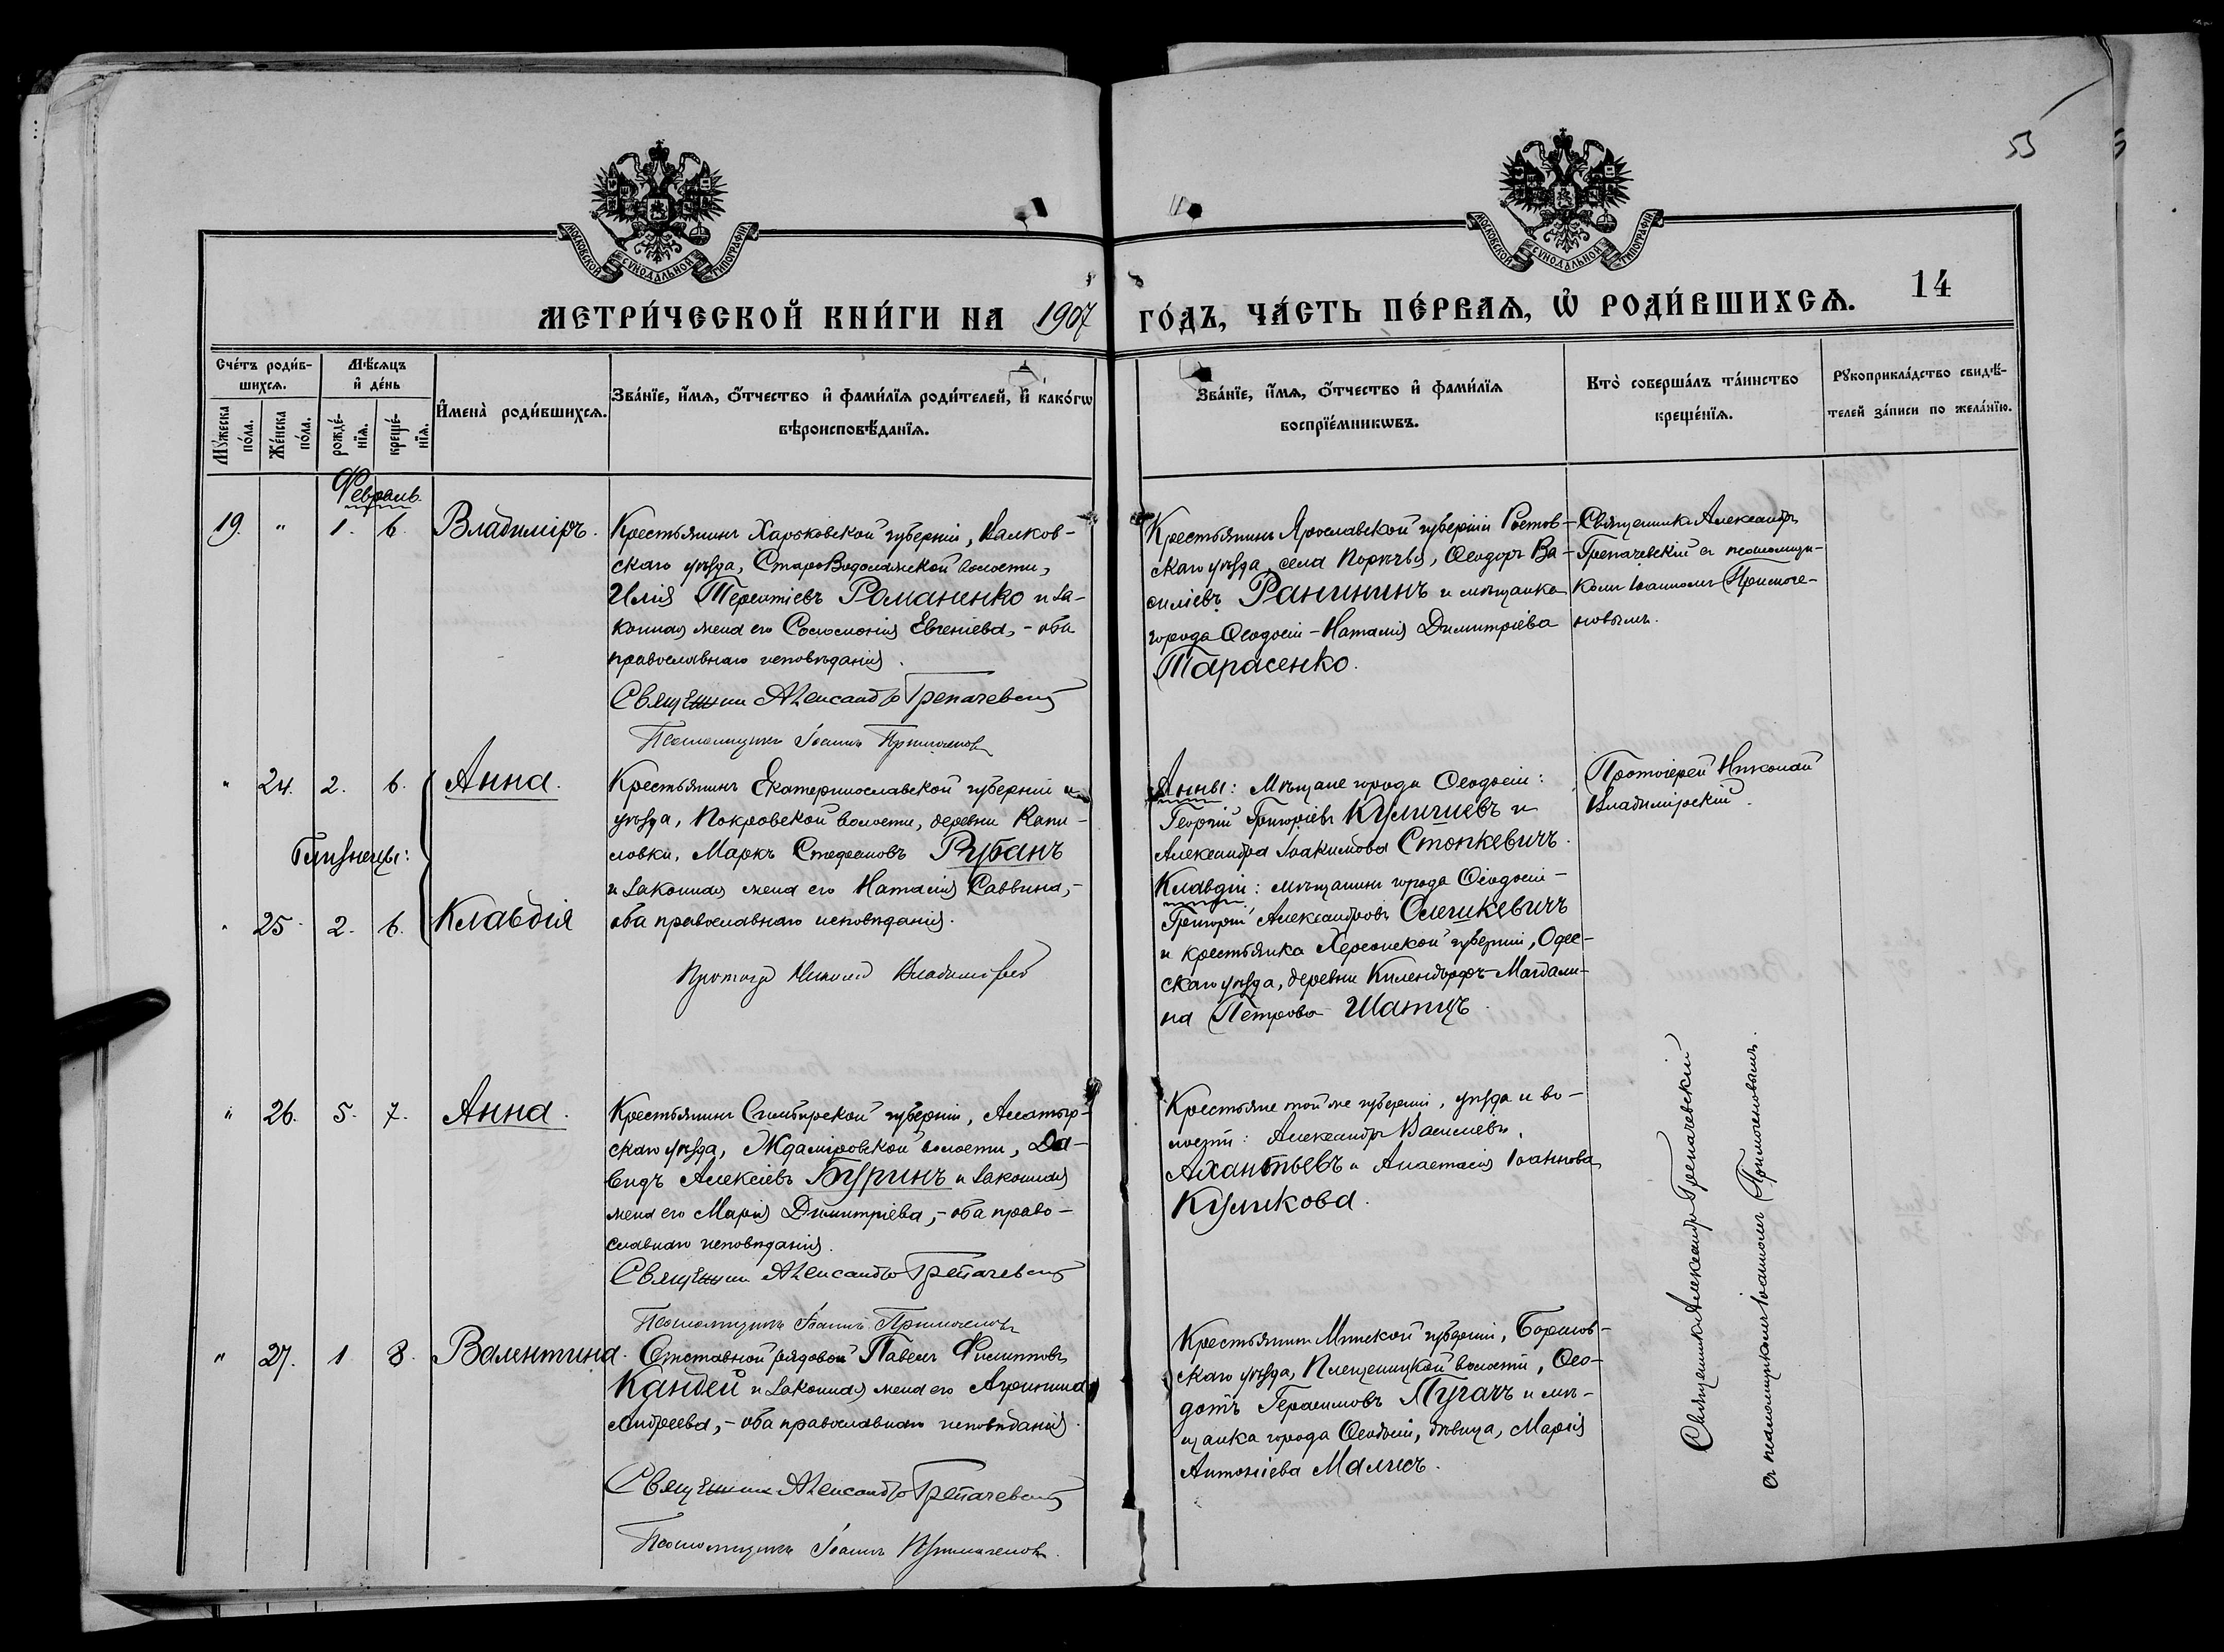 55
МОСКОВСКОЙ СѴНОДАЛЬНОЙ ТИПОГРАФІИ
МОСКОВСКОЙ СѴНОДАЛЬНОЙ ТИПОГРАФІИ
МЕТРИ́ЧЕСКОЙ КНИ́ГИ НА 1907 ГО́ДЪ, ЧА́СТЬ ПЕ́РВАѦ, Ѡ҆ РОДИ́ВШИХСѦ. 14
Сче́тъ роди́в-
шихсѧ.
Мꙋ́жеска
по́ла.
Же́нска
по́ла.
Мѣ́сѧцъ
и҆ де́нь
рожде́-
нїѧ.
креще́-
нїѧ.
И҆мена̀ роди́вшихсѧ.
Зва́нїе, и҆́мѧ, ѻ҆́тчество и҆ фами́лїѧ роди́телей, и҆ како́гѡ
вѣроисповѣ́данїѧ.
Зва́нїе, и҆́мѧ, ѻ҆́тчество и҆ фами́лїѧ
воспрїе́мникѡвъ.
Кто̀ соверша́лъ та́инство
креще́нїѧ.
Рꙋкоприкла́дство свидѣ́-
телей за́писи по жела́нїю.
Февраль.
19. " 1. 6. Владиміръ.
Крестьянинъ Харьковской губерніи, Валков-
скаго уѣзда, СтароВодолажской волости,
Илія Терентіевъ Романенко и за-
конная жена его Соломонія Евгеніева,- оба
православнаго исповѣданія.
Священник Александръ Грепачевскій
Псаломщикъ Іоаннъ Примоченов
Крестьянинъ Ярославской губерніи Ростов-
скаго уѣзда, села Порѣчья, Ѳеодоръ Ва-
силіевъ Ранининъ и мѣщанка
города Ѳеодосіи - Наталія Димитріева
Тарасенко.
Священникъ Александръ
Грепачевскій съ псаломщи-
комъ Іоанномъ Примоче-
новымъ.
" 24. 2. 6. Анна.
Близнецы:
" 25. 2. 6. Клавдія
Крестьянинъ Екатеринославской губерніи и
уѣзда, Покровской волости, деревни Капи-
ловки, Маркъ Стефановъ Рубанъ
и законная жена его Наталія Саввина,-
оба православнаго исповѣданія.
Протоіер Николай Владимірскій
Анны: Мѣщане города Ѳеодосіи:
Георгій Григоріевъ Куличиевъ и
Александра Іоакимова Стопкевичъ.
Клавдіи: мѣщанинъ города Ѳеодосіи -
Григорій Александровъ Олешкевичъ
и крестьянка Херсонской губерніи, Одес-
скаго уѣзда, деревни Килендорфъ-Магдали-
на Петрова Шатцъ.
Протоіерей Николай
Владимірскій.
" 26. 5. 7. Анна.
Крестьянинъ Симбирской губерніи, Алатыр-
скаго уѣзда, Ждаміровской волости, Да-
видъ Алексіевъ Буринъ и законная
жена его Марія Димитріева,- оба право-
славнаго исповѣданія.
Священник Александръ Грепачевскій
Псаломщикъ Іоаннъ Примоченовъ
Крестьяне той же губерніи, уѣзда и во-
лости: Александръ Василіевъ
Ахантьевъ и Анастасія Іоаннова
Куликова.
" 27. 1. 8. Валентина.
Отставной рядовой Павелъ Филипповъ
Кандей и законная жена его Агриппина
Андреева,- оба православнаго исповѣданія.
Священник Александръ Грепачевскій
Псаломщикъ Іоаннъ Примоченов.
Крестьянинъ Минской губерніи, Борисов-
скаго уѣзда, Плещеницкой волости, Ѳео-
дотъ Герасимовъ Пугачъ и мѣ-
щанка города Ѳеодосіи, дѣвица, Марія
Антоніева Малисъ.
Священникъ Александръ Грепачевскій
съ псаломщикомъ Іоанномъ Примоченовымъ.